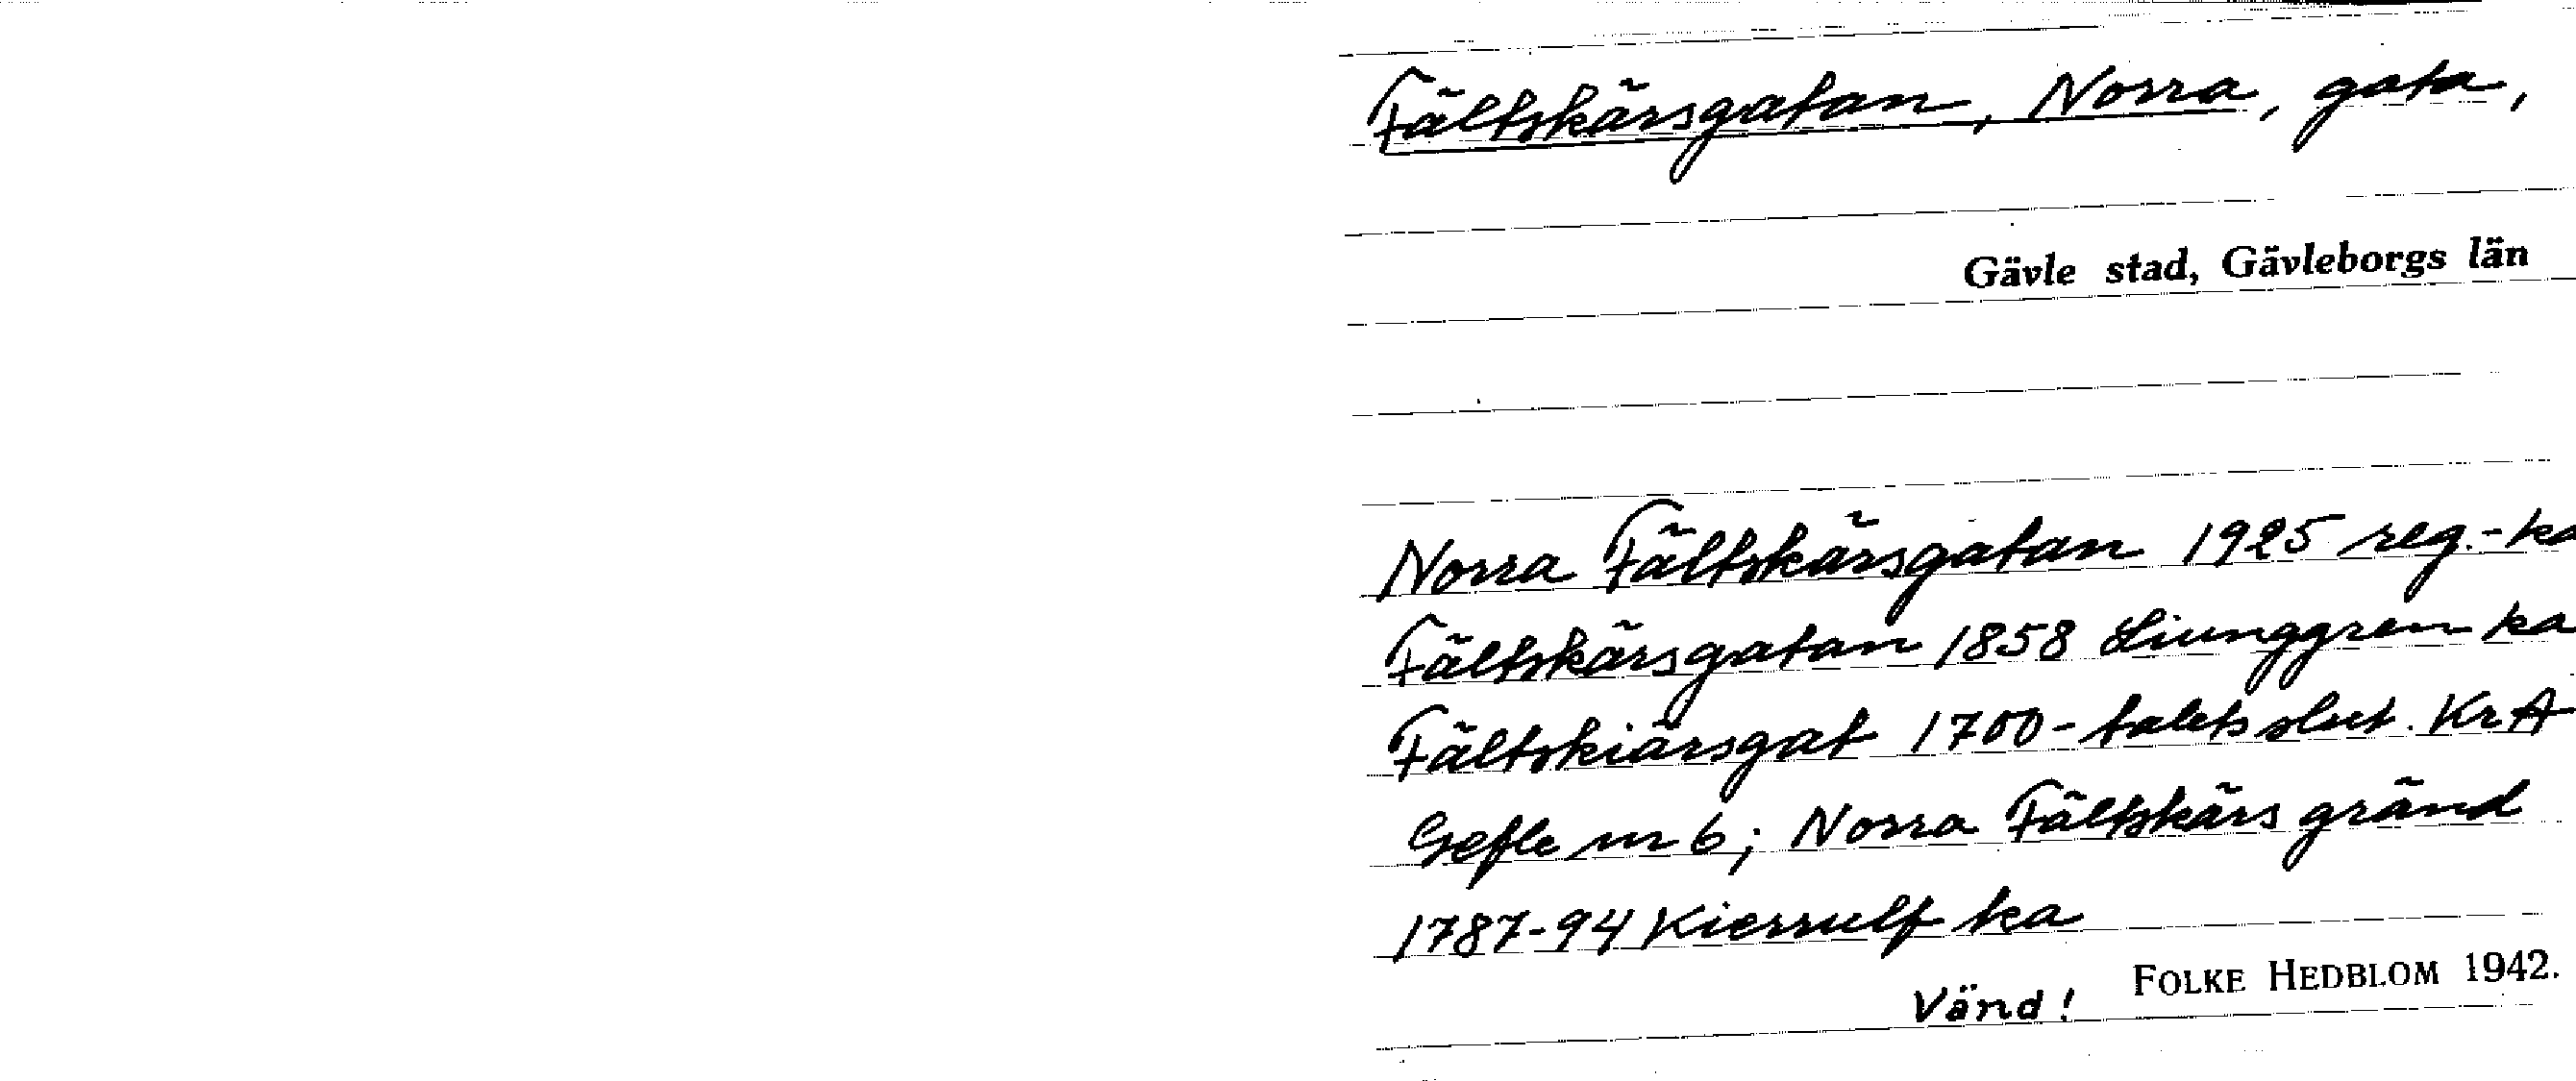 Fältskärsgatan, Norra, gata,
Gävle stad, Gävleborgs län
Norra Fältskärsgatan 1925 reg.-ka
Fältskärsgatan 1858 Liunggren ka
Fältskiärsgat 1700-talets slut. KrA
Gefle nr 6; Norra Fältskärs gränd
1787-94 Kierrulf ka
Vänd! FOLKE HEDBLOM 1942.